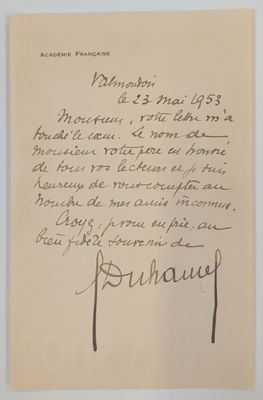 ACADÉMIE FRANÇAISE
Valmondois
le 23 mai 1953
Monsieur, votre lettre m'a
touché le cœur. Le nom de
Monsieur votre père est honoré
de tous vos lecteurs et je suis
heureux de vous compter au
nombre de mes amis inconnus.
Croyez, je vous en prie, au
bien fidèle souvenir de
GDuhamel